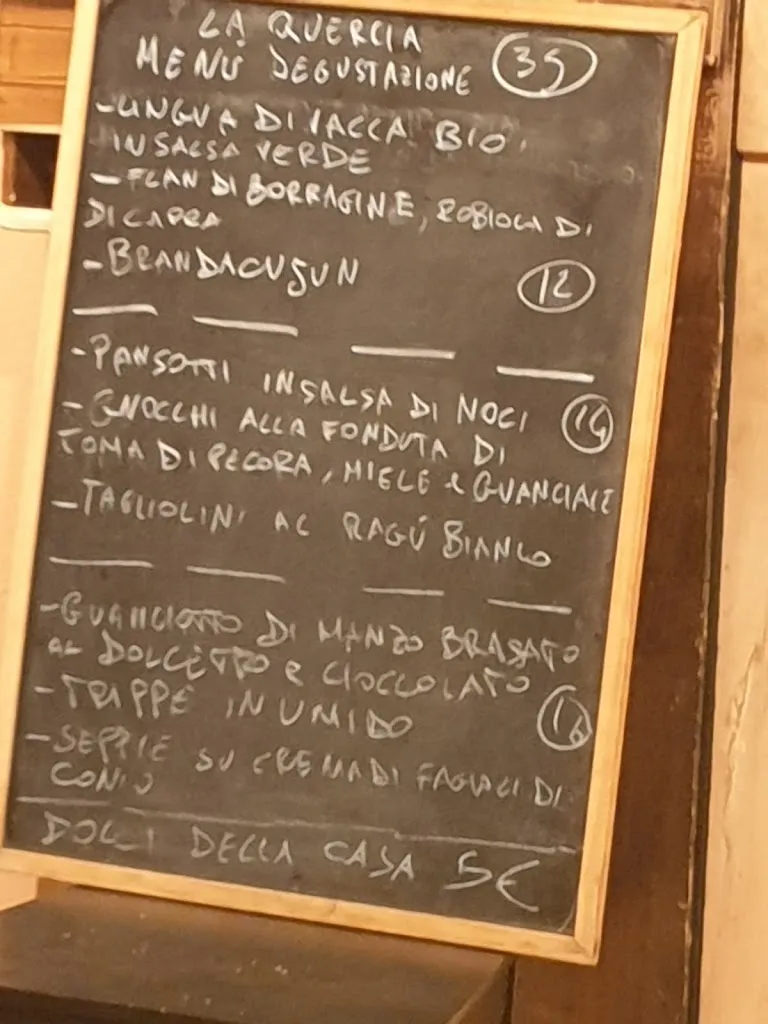 LA QUERCIA
MENÙ DEGUSTAZIONE 35
-LINGUA DI VACCA BIO
IN SALSA VERDE
-FLAN DI BORRAGINE, ROBIOLA DI
DI CAPRA
-BRANDACUJUN 12
-PANSOTTI IN SALSA DI NOCI
-GNOCCHI ALLA FONDUTA DI 14
TOMA DI PECORA, MIELE e GUANCIALE
-TAGLIOLINI AL RAGÚ BIANCO
-GUANCIOTTO DI MANZO BRASATO
AL DOLCETTO e CIOCCOLATO
-TRIPPE IN UMIDO 16
-SEPPIE SU CREMA DI FAGIOLI DI
CONIO
DOLCI DELLA CASA 5€